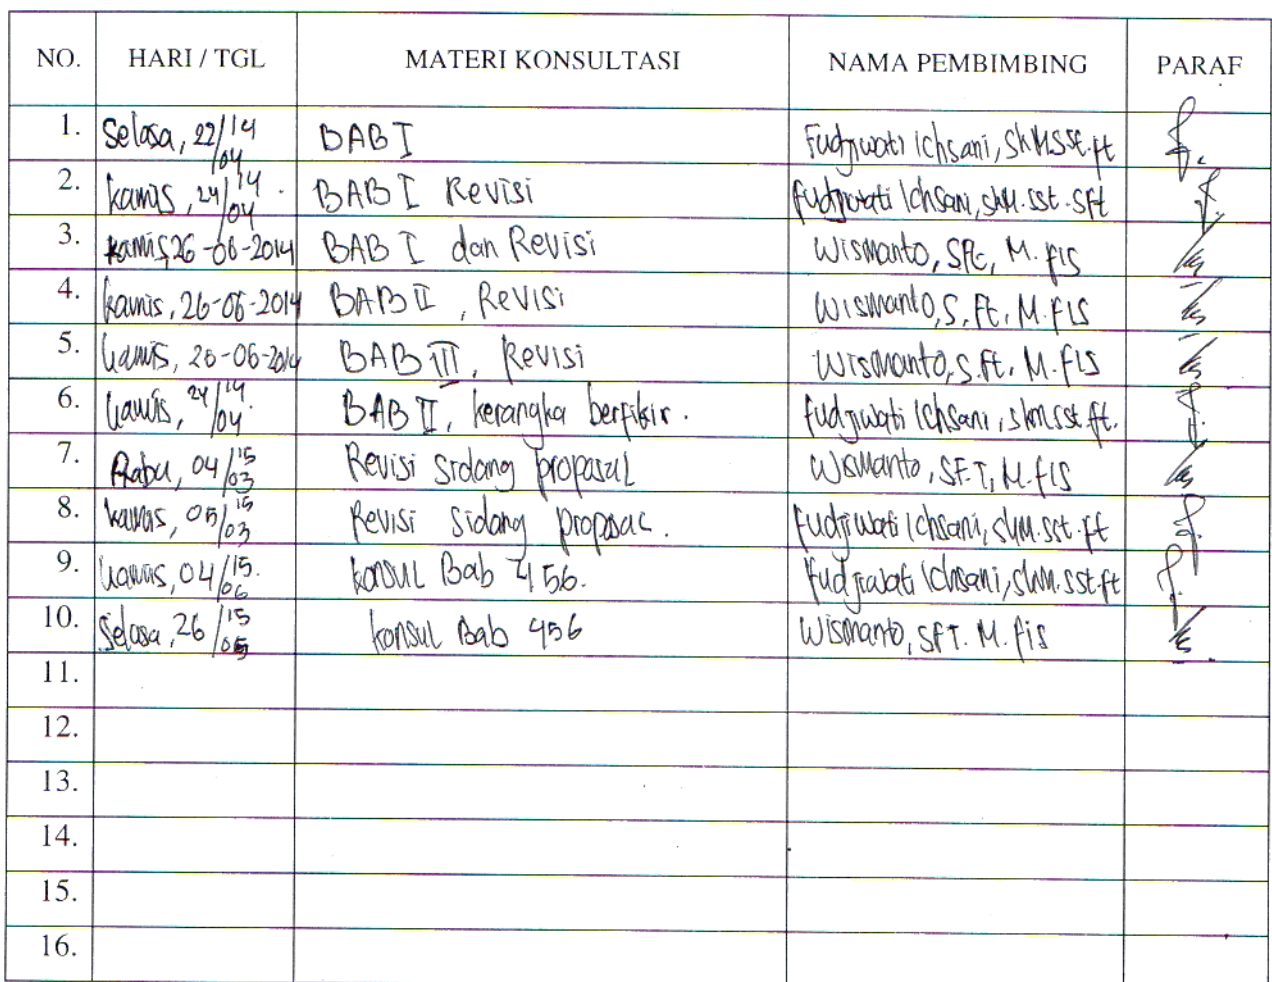 NO. HARI / TGL MATERI KONSULTASI NAMA PEMBIMBING PARAF
1. Selasa, 22/04 14 BAB I Fudjiwati Ichsani, SKM.SSt.ft
2. kamis, 24/04 14. BAB I Revisi fudjiwati Ichsani, skM.sst.sft
3. kamis, 26-06-2014 BAB I dan Revisi Wismanto, Sft, M.fis
4. kamis, 26-06-2014 BAB II, Revisi Wismanto, S.Ft, M.fis
5. kamis, 26-06-2014 BAB III, Revisi Wismanto, S.ft, M.fis
6. kamis, 24/04 14. BAB II, kerangka berfikir. fudjiwati Ichsani, skm.sst.ft.
7. Rabu, 04/03 15 Revisi Sidang proposal Wismanto, SF.T, M.fis
8. kamis, 05/03 15 Revisi Sidang proposal. fudjiwati Ichsani, skm.sst.ft
9. kamis, 04/06 15. konsul Bab 456. fudjiwati Ichsani, skm.sst.ft
10. Selasa, 26/05 15 konsul Bab 456 Wismanto, SFT. M.fis
11.
12.
13.
14.
15.
16.